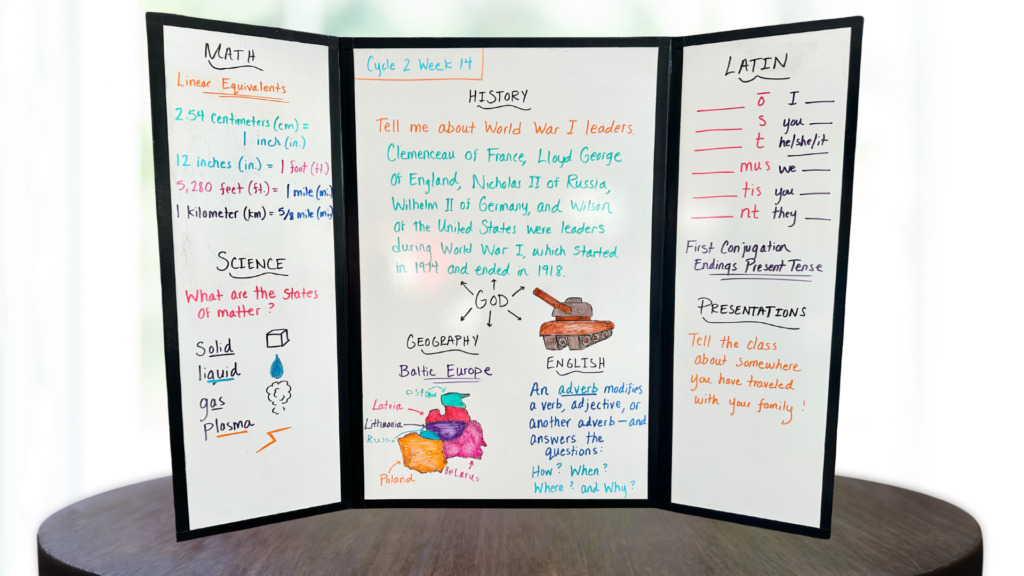 MATH
Linear Equivalents
2.54 centimeters (cm) =
1 inch (in.)
12 inches (in.) = 1 foot (ft.)
5,280 feet (ft.) = 1 mile (mi.)
1 kilometer (km) = 5/8 mile (mi.)
SCIENCE
What are the states
of matter?
Solid
liquid
gas
plasma
Cycle 2 Week 14
HISTORY
Tell me about World War I leaders.
Clemenceau of France, Lloyd George
of England, Nicholas II of Russia,
Wilhelm II of Germany, and Wilson
of the United States were leaders
during World War I, which started
in 1914 and ended in 1918.
GOD
GEOGRAPHY
Baltic Europe
Estonia
Latvia
Lithuania
Russia
Poland
Belarus
ENGLISH
An adverb modifies
a verb, adjective, or
another adverb—and
answers the
questions:
How? When?
Where? and Why?
LATIN
____ ō I ____
____ s you ____
____ t he/she/it ____
____ mus we ____
____ tis you ____
____ nt they ____
First Conjugation
Endings Present Tense
PRESENTATIONS
Tell the class
about somewhere
you have traveled
with your family!